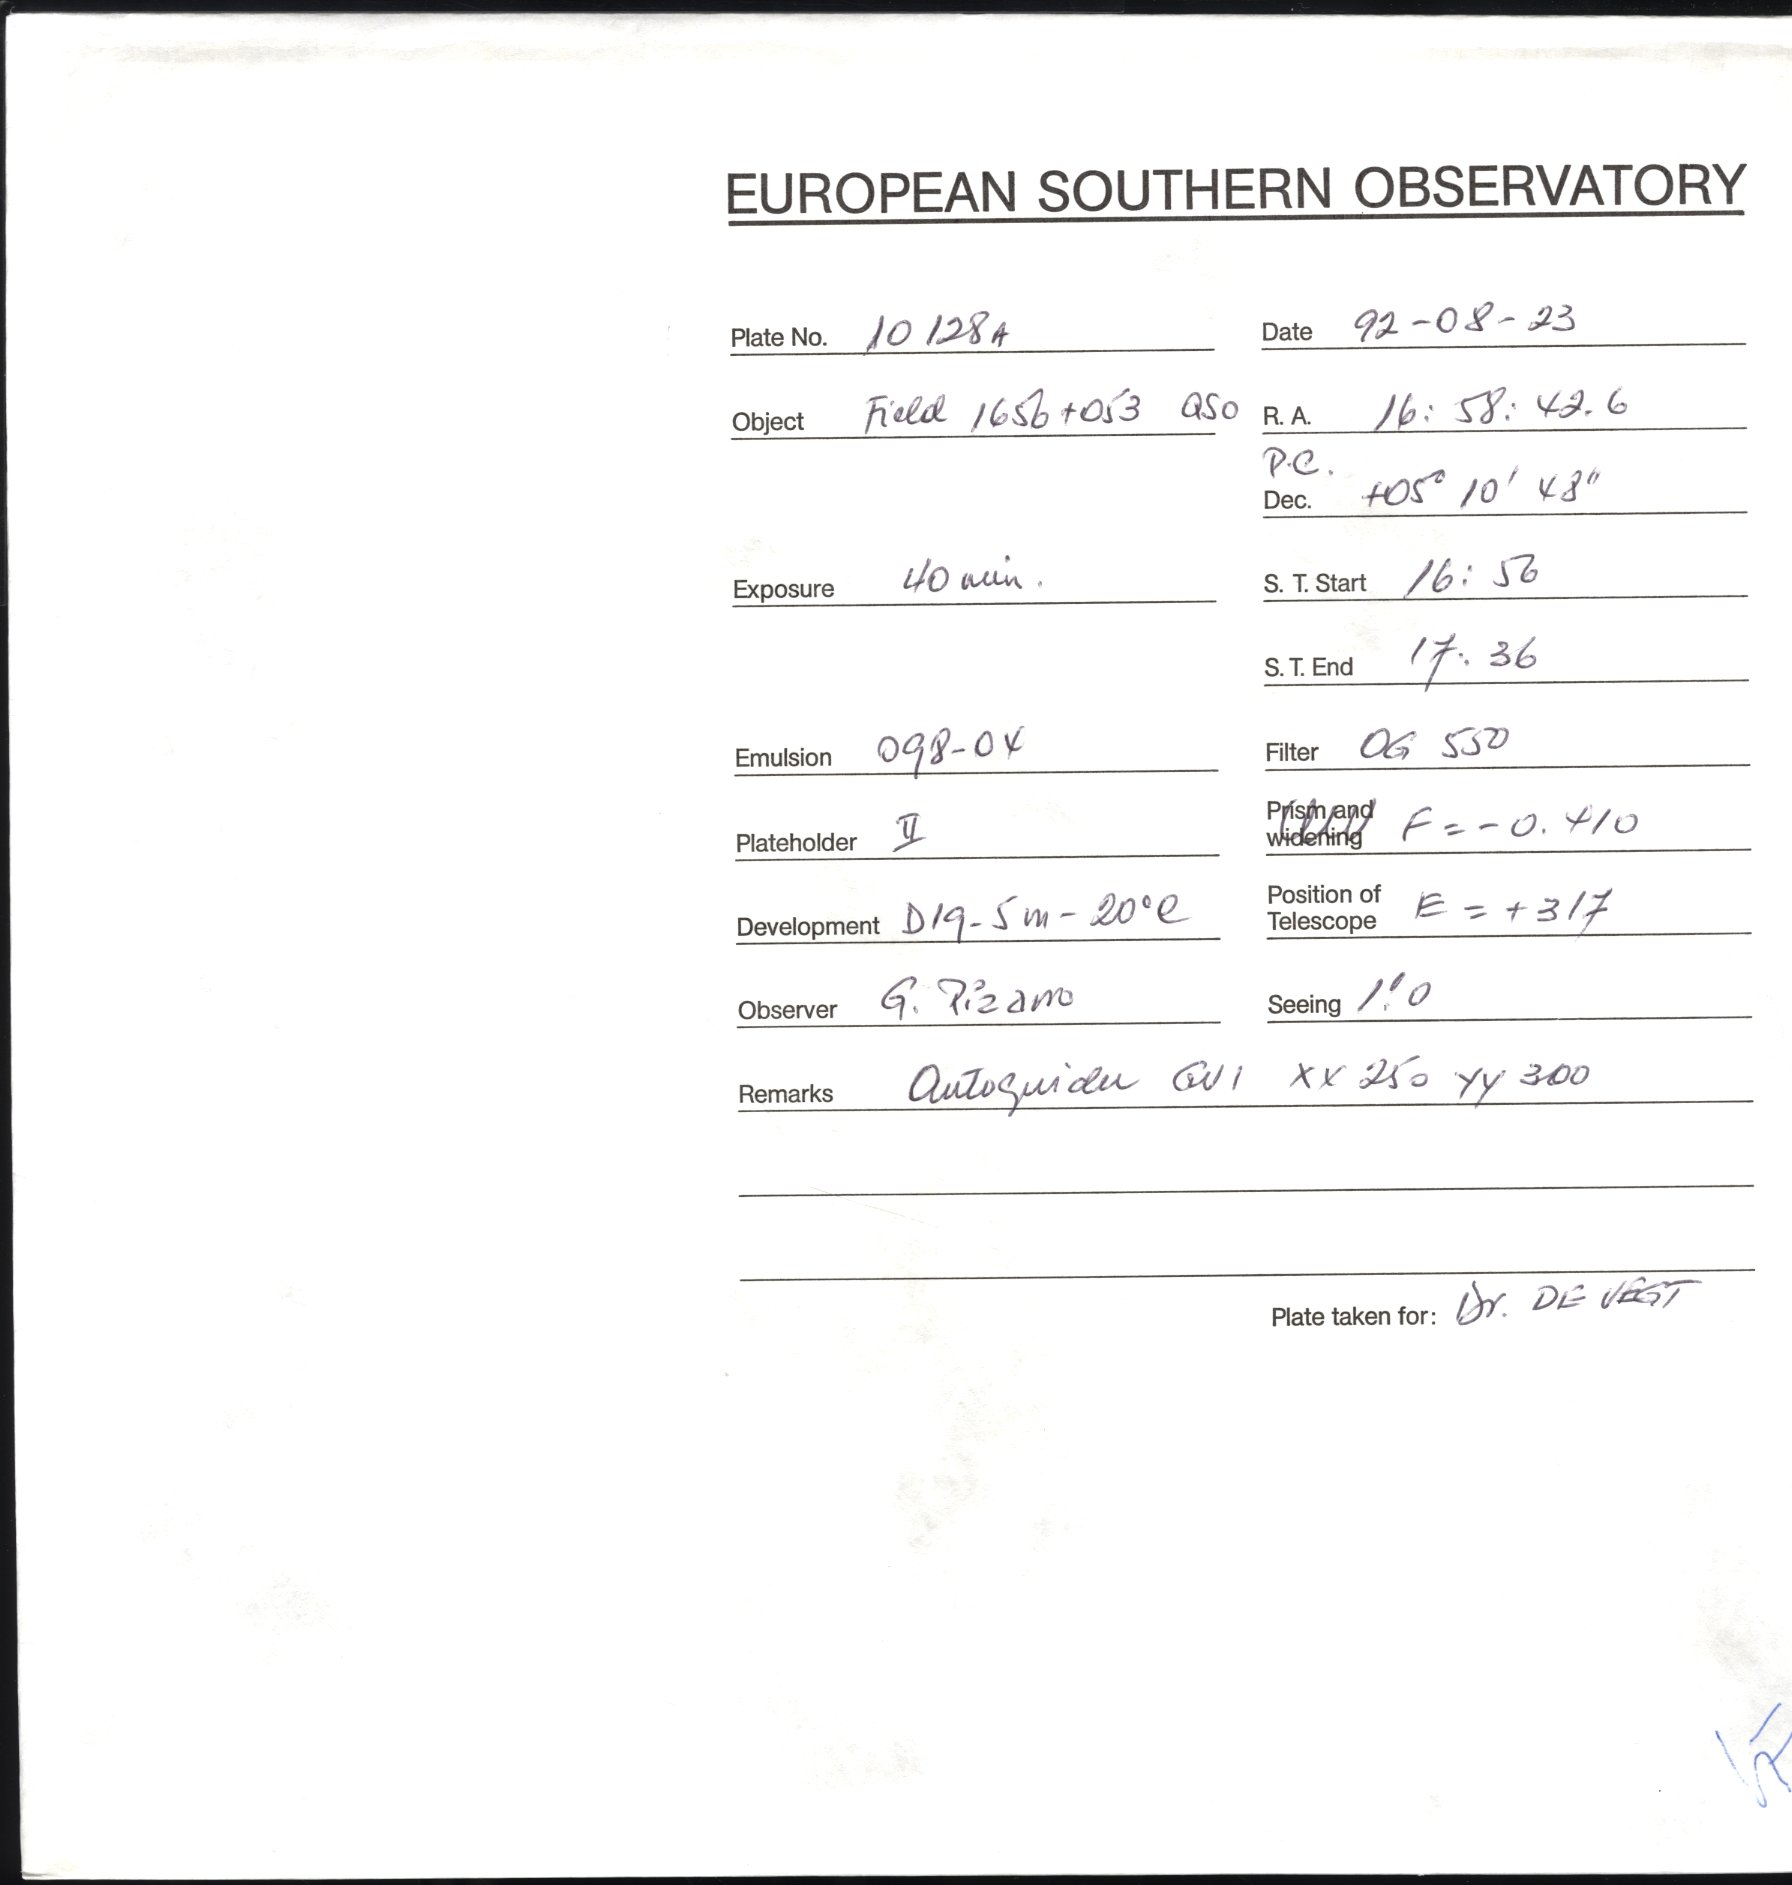 EUROPEAN SOUTHERN OBSERVATORY
Plate No. 10128A Date 92-08-23
Object Field 1656+053 QSO R. A. 16: 58: 42.6
P.C.
Dec. +05° 10' 48"
Exposure 40 min. S. T. Start 16: 56
S. T. End 17: 36
Emulsion 098-04 Filter OG 550
Plateholder II Prism and widening F = -0.410
Development D19-5m-20°C Position of Telescope E = +317
Observer G. Pizarro Seeing 1".0
Remarks Autoguider GV1 XX 250 YY 300
Plate taken for: Dr. DE VEGT